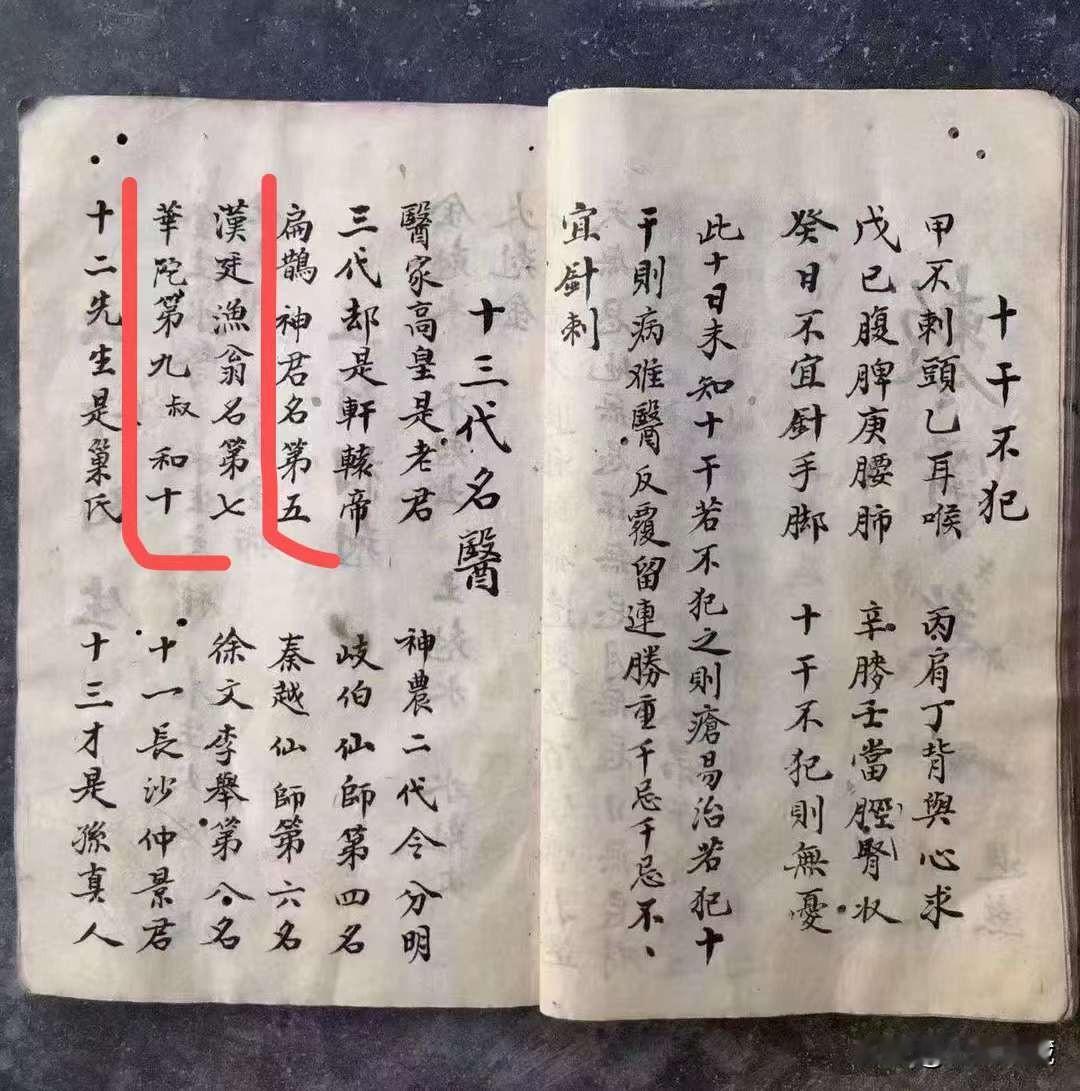 十干不犯
甲不刺頭乙耳喉 丙肩丁背與心求
戊己腹脾庚腰肺 辛膝壬當脛腎收
癸日不宜針手脚 十干不犯則無憂
此十日未知十干若不犯之則瘡易治若犯十
干則病难醫反覆留連勝重千忌千忌不、
宜針刺
十三代名醫
醫家高皇是老君 神農二代令分明
三代却是軒轅帝 岐伯仙師第四名
扁鵲神君名第五 秦越仙師第六名
漢廷漁翁名第七 徐文李舉第八名
華陀第九叔和十 十一長沙仲景君
十二先生是巢氏 十三才是孫真人